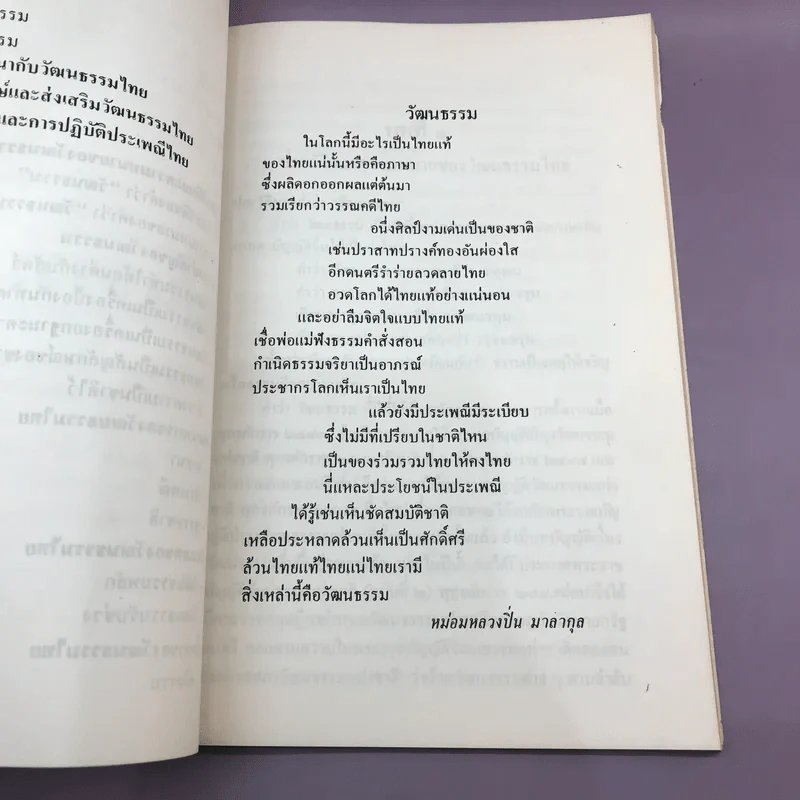 รรม
รม
นากับวัฒนธรรมไทย
ษ์และส่งเสริมวัฒนธรรมไทย
และการปฏิบัติประเพณีไทย
วัฒนธรรม
ในโลกนี้มีอะไรเป็นไทยแท้
ของไทยแน่นั้นหรือคือภาษา
ซึ่งผลิดอกออกผลแต่ต้นมา
รวมเรียกว่าวรรณคดีไทย
อนึ่งศิลป์งามเด่นเป็นของชาติ
เช่นปราสาทปรางค์ทองอันผ่องใส
อีกดนตรีรำร่ายลวดลายไทย
อวดโลกได้ไทยแท้อย่างแน่นอน
และอย่าลืมจิตใจแบบไทยแท้
เชื่อพ่อแม่ฟังธรรมคำสั่งสอน
กำเนิดธรรมจริยาเป็นอาภรณ์
ประชากรโลกเห็นเราเป็นไทย
แล้วยังมีประเพณีมีระเบียบ
ซึ่งไม่มีที่เปรียบในชาติไหน
เป็นของร่วมรวมไทยให้คงไทย
นี่แหละประโยชน์ในประเพณี
ได้รู้เช่นเห็นชัดสมบัติชาติ
เหลือประหลาดล้วนเห็นเป็นศักดิ์ศรี
ล้วนไทยแท้ไทยแน่ไทยเรามี
สิ่งเหล่านี้คือวัฒนธรรม
หม่อมหลวงปิ่น มาลากุล